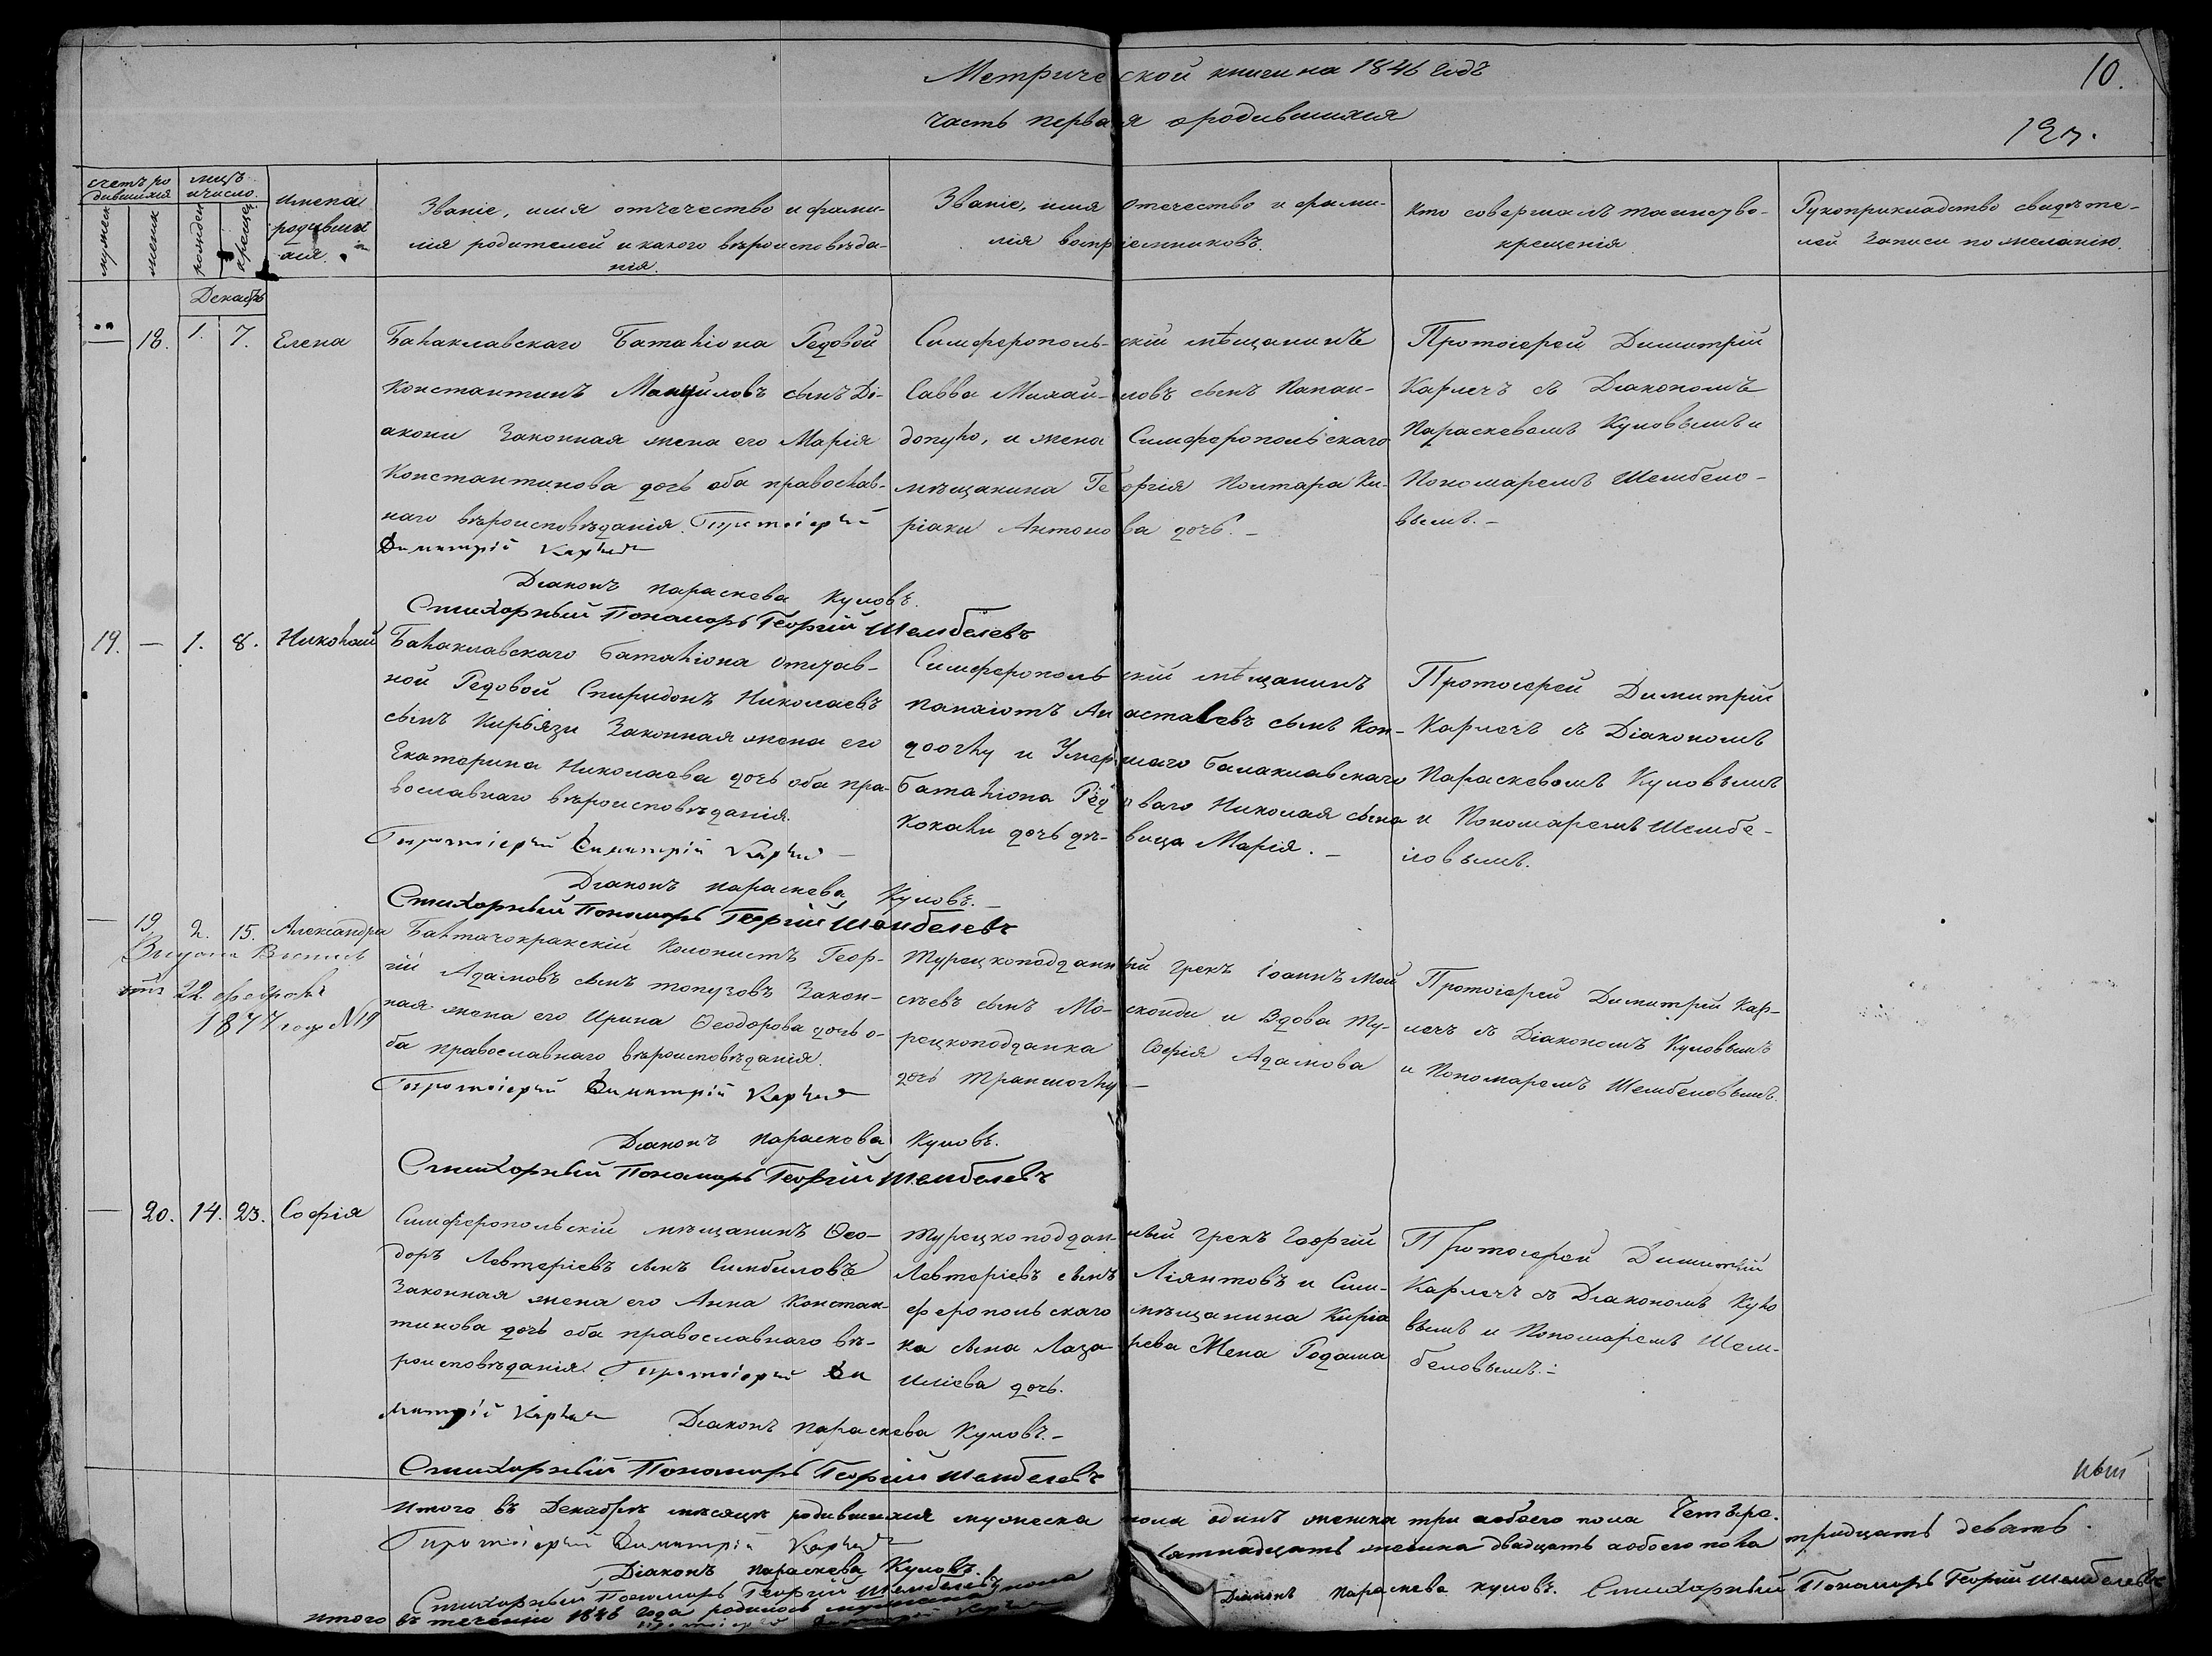 Метрической книги на 1846 годъ
10.
часть первая о родившихся
счетъ ро
дившихся
мужск
женск
мцъ
и число
рожден
крещен
имена
родивших
ся.
Званіе, имя отчечество и фами-
лія родителей и какого вѣроисповѣда-
нія.
Званіе, имя отечество и фами-
лія воспріемниковъ.
Кто совершалъ таинство
крещенія
Рукоприкладство свидѣте-
лей записи по желанію.
Декабрь
— 18. 1. 7. Елена
Балаклавскаго Баталіона Редовой
Константинъ Мануиловъ сынъ Ді-
акони Законная жена его Марія
Константинова дочь оба православ-
наго вѣроисповѣданія. Протоіерей
Димитрій Карлеч
Діаконъ Параскева Куловъ.
Стихорный Пономарь Георгій Шембелевъ
Симферопольскій мѣщанинъ
Савва Михайловъ сынъ Папан-
допуло, и жена Симферопольскаго
мѣщанина Георгія Полтара Ки-
ріаки Антонова дочь. –
Протоіерей Димитрій
Карлечъ съ Діакономъ
Параскевомъ Куловымъ и
Пономаремъ Шембело-
вымъ. –
19. — 1. 8. Николай
Балаклавскаго Баталіона Отстав-
ной Редовой Спиридонъ Николаевъ
сынъ Кирьязи Законная жена его
Екатерина Николаева дочь оба пра-
вославнаго вѣроисповѣданія.
Протоіерей Димитрій Карлеч
Діаконъ Параскева Куловъ. –
Стихорный Пономарь Георгій Шембелевъ
Симферопольскій мѣщанинъ
Панаіотъ Анастасевъ сынъ Кон-
доглу и Умершаго Балаклавскаго
Баталіона Редоваго Николая сына
Кокали дочь дѣвица Марія. –
Протоіерей Димитрій
Карлечъ съ Діакономъ
Параскевомъ Куловымъ
и Пономаремъ Шембе-
ловымъ.
— 19. 2. 15. Александра
Выдана Выпись
22 февраля
1877 года № 19
Балтачокракскій Колонистъ Геор-
гій Адамовъ сынъ Топузовъ Закон-
ная жена его Ирина Ѳеодорова дочь о-
ба православнаго вѣроисповѣданія.
Протоіерей Димитрій Карлеч
Діаконъ Параскева Куловъ.
Стихорный Пономарь Георгій Шембелевъ
Турецкоподданный грекъ Іоаннъ Мои
сѣевъ сынъ Москонди и Вдова Ту-
рецкоподданка Софія Адамова
дочь
Протоіерей Димитрій Кар-
лечъ съ Діакономъ Куловымъ
и Пономаремъ Шембеловымъ.
— 20. 14. 23. Софія
Симферопольскій мѣщанинъ Ѳео-
доръ Левтеріевъ сынъ Симбиловъ
Законная жена его Анна Констан-
тинова дочь оба православнаго вѣ-
роисповѣданія. Протоіерей Ди
митрій Карлеч Діаконъ Параскева Куловъ. –
Стихорный Пономарь Георгій Шембелевъ
Турецкоподданный грекъ Георгій
Левтеріевъ сынъ Ліянтовъ и Сим-
феропольскаго мѣщанина Киріа
ка сына Лазарева Жена Родама
Иліева дочь.
Протоіерей Димитрій
Карлечъ съ Діакономъ Куло
вымъ и Пономаремъ Шем-
беловымъ. –
Итого въ Декабрѣ мѣсяцѣ родившихся мужеска пола одинъ женска три а обоего пола Четыре.
Протоіерей Димитрій Карлеч
Діаконъ Параскева Куловъ.
Стихорный Пономарь Георгій Шембелевъ
Итого въ теченіи 1846 года родилось мужеска пола
женска двадцать а обоего пола тридцать девать.
Протоіерей Димитрій Карлеч
Діаконъ Параскева Куловъ. Стихорный Пономарь Георгій Шембелевъ